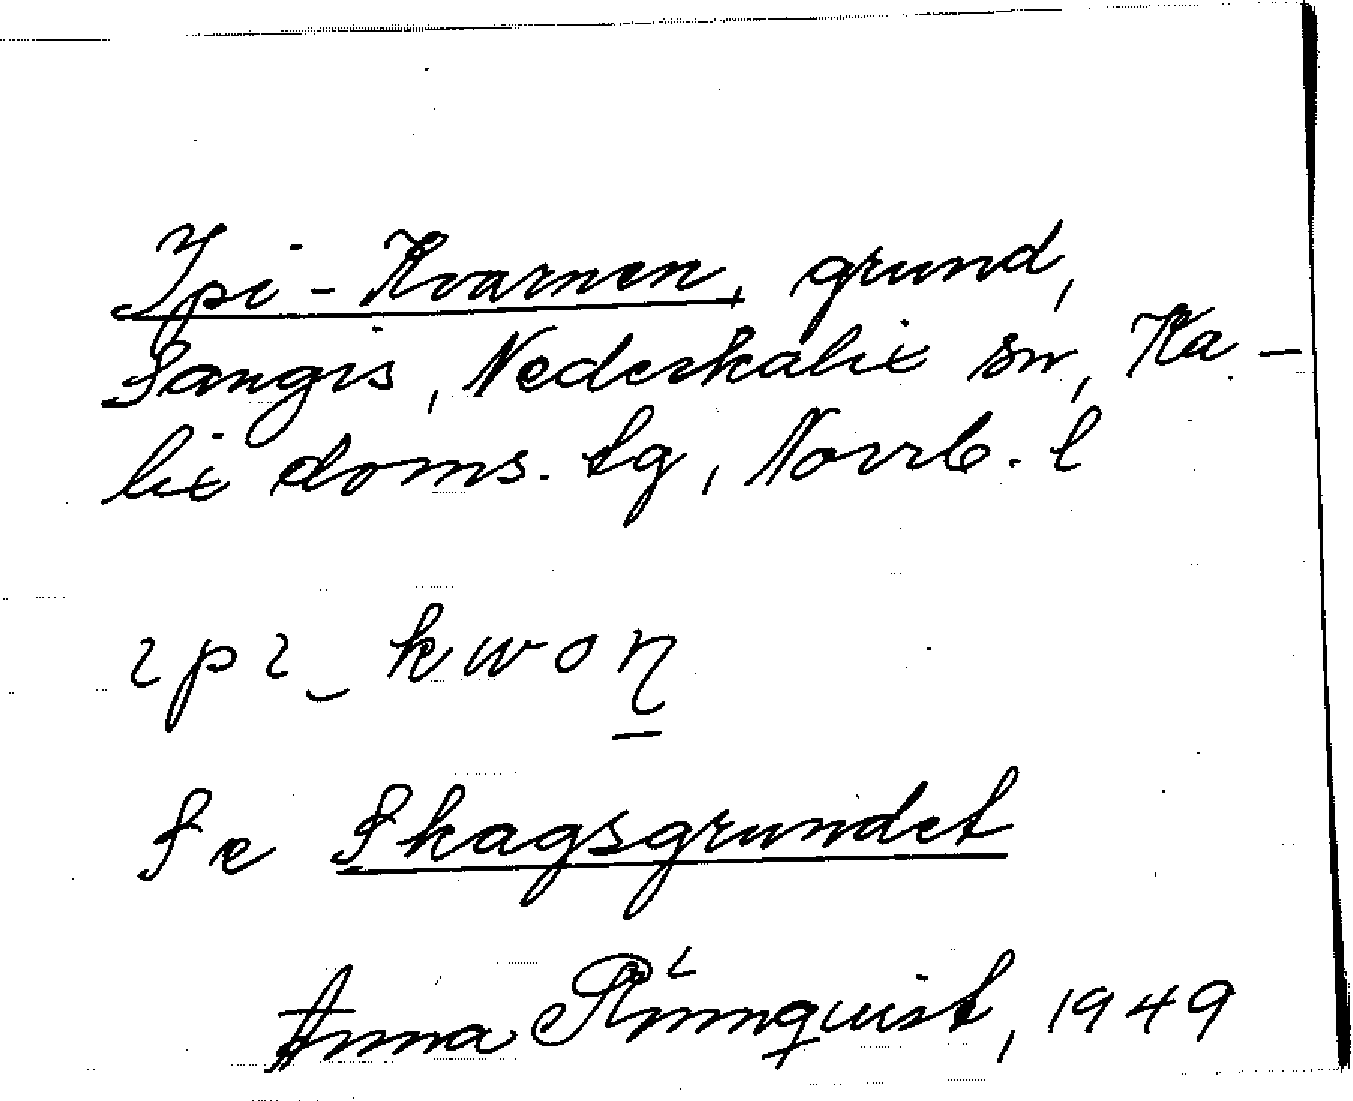 Ipi-Kvarnen, grund,
Sangis, Nederkalix sn, Ka-
lix doms. tg, Norrb. l
ɩpɩ_kwoɳ
Se Skagsgrundet
Anna Rönnquist, 1949